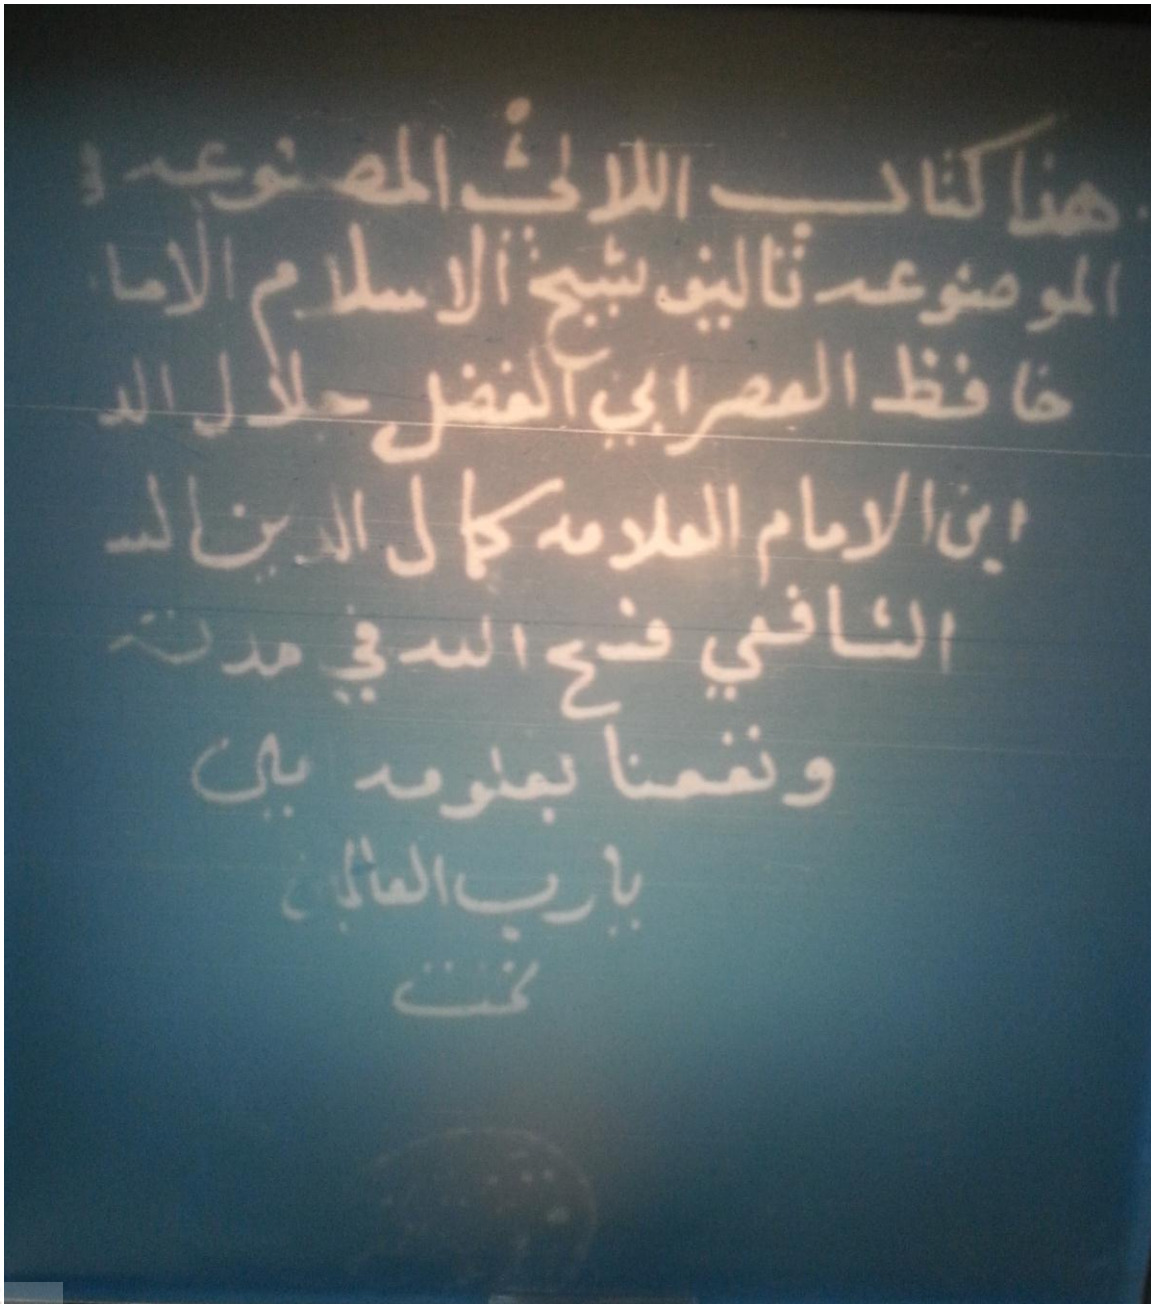 هذا كتاب اللالئ المصنوعه في
الموضوعه تاليف شيخ الاسلام الاما
حافظ العصر ابي الفضل جلال الد
ابن الامام العلامه كمال الدين الس
الشافعي فسح الله في مدته
ونفعنا بعلومه
يارب العالمين